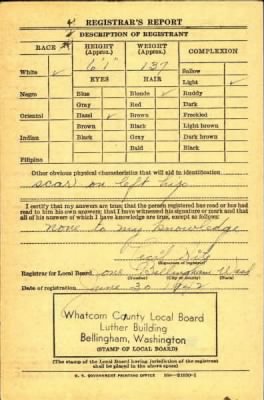 REGISTRAR'S REPORT
DESCRIPTION OF REGISTRANT
RACE HEIGHT (Approx.) WEIGHT (Approx.) COMPLEXION
6'1" 137
White ✓ EYES HAIR Sallow
Light ✓
Negro Blue Blonde ✓ Ruddy
Gray Red Dark
Oriental Hazel ✓ Brown Freckled
Brown Black Light brown
Indian Black Gray Dark brown
Bald Black
Filipino
Other obvious physical characteristics that will aid in identification
scar on left hip
I certify that my answers are true; that the person registered has read or has had
read to him his own answers; that I have witnessed his signature or mark and that
all of his answers of which I have knowledge are true, except as follows:
none to my knowledge
(Signature of registrar)
Registrar for Local Board one Bellingham Wash
Date of registration June 30 1942
Whatcom County Local Board
Luther Building
Bellingham, Washington
(STAMP OF LOCAL BOARD)
(The stamp of the Local Board having jurisdiction of the registrant
shall be placed in the above space)
U. S. GOVERNMENT PRINTING OFFICE